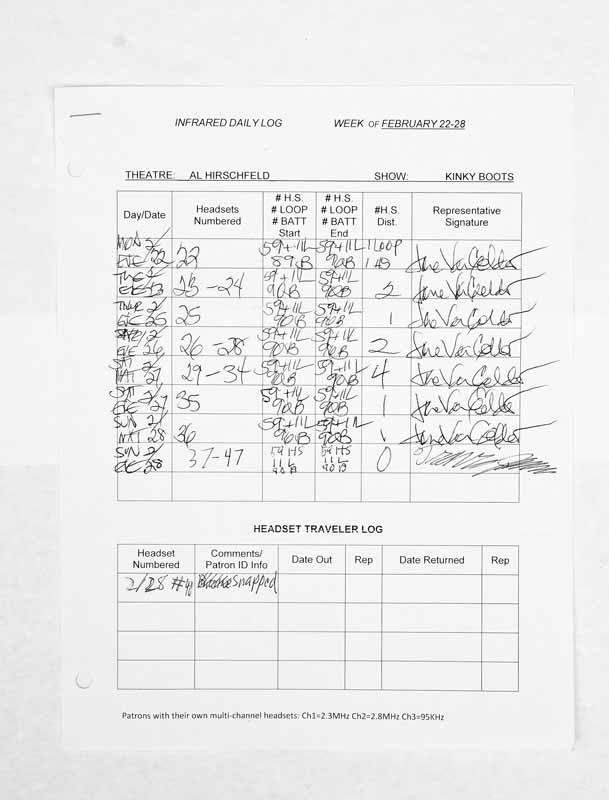 INFRARED DAILY LOG WEEK OF FEBRUARY 22-28
THEATRE: AL HIRSCHFELD SHOW: KINKY BOOTS
Day/Date
Headsets
Numbered
# H.S.
# LOOP
# BATT
Start
# H.S.
# LOOP
# BATT
End
#H.S.
Dist.
Representative
Signature
MON 2/
EVE 22
22
59+11L
89B
59+11L
90B
1 LOOP
1 HS
23-24
59+11L
90B
59+11L
90B
2
EVE 25
25
59+11L
90B
59+11L
90B
1
EVE 26
26-28
59+11L
90B
59+11L
90B
2
SAT 2/
MAT 27
29-34
59+11L
90B
59+11L
90B
4
SAT 2/
EVE 27
35
59+11L
90B
59+11L
90B
1
SUN 2/
MAT 28
36
59+11L
90B
59+11L
90B
1
SUN 2/
EVE 28
37-47
59 HS
11 L
90 B
59 HS
11 L
90 B
0
HEADSET TRAVELER LOG
Headset
Numbered
Comments/
Patron ID Info
Date Out
Rep
Date Returned
Rep
2/28
snapped
Patrons with their own multi-channel headsets: Ch1=2.3MHz Ch2=2.8MHz Ch3=95KHz